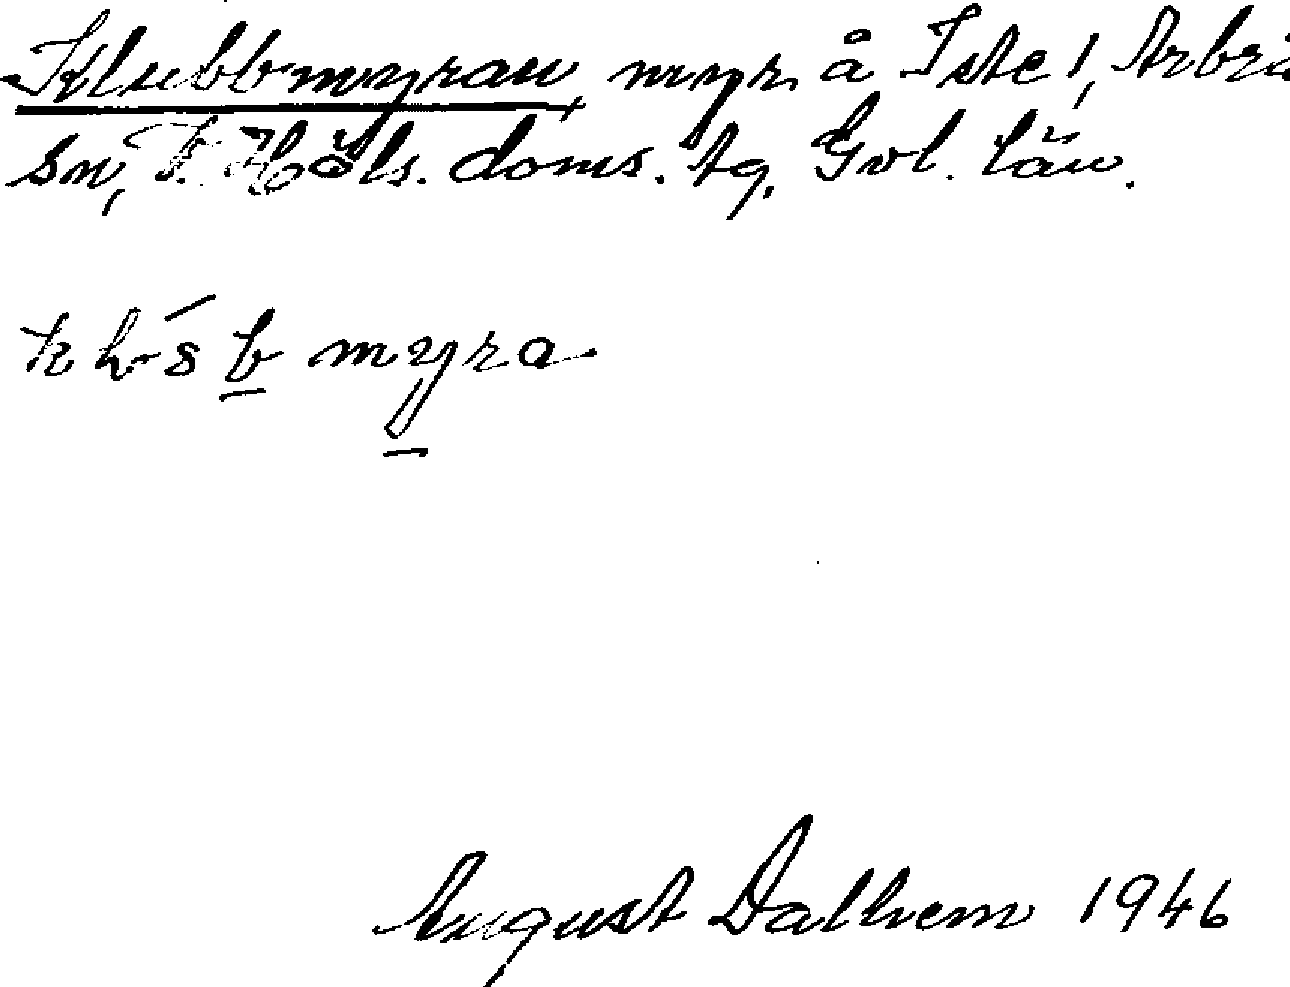 Klubbmyran, myr å Iste 1, Arbrå
sn, V. Häls. doms. tg. Gvl. län.
myra
August Dalhem 1946